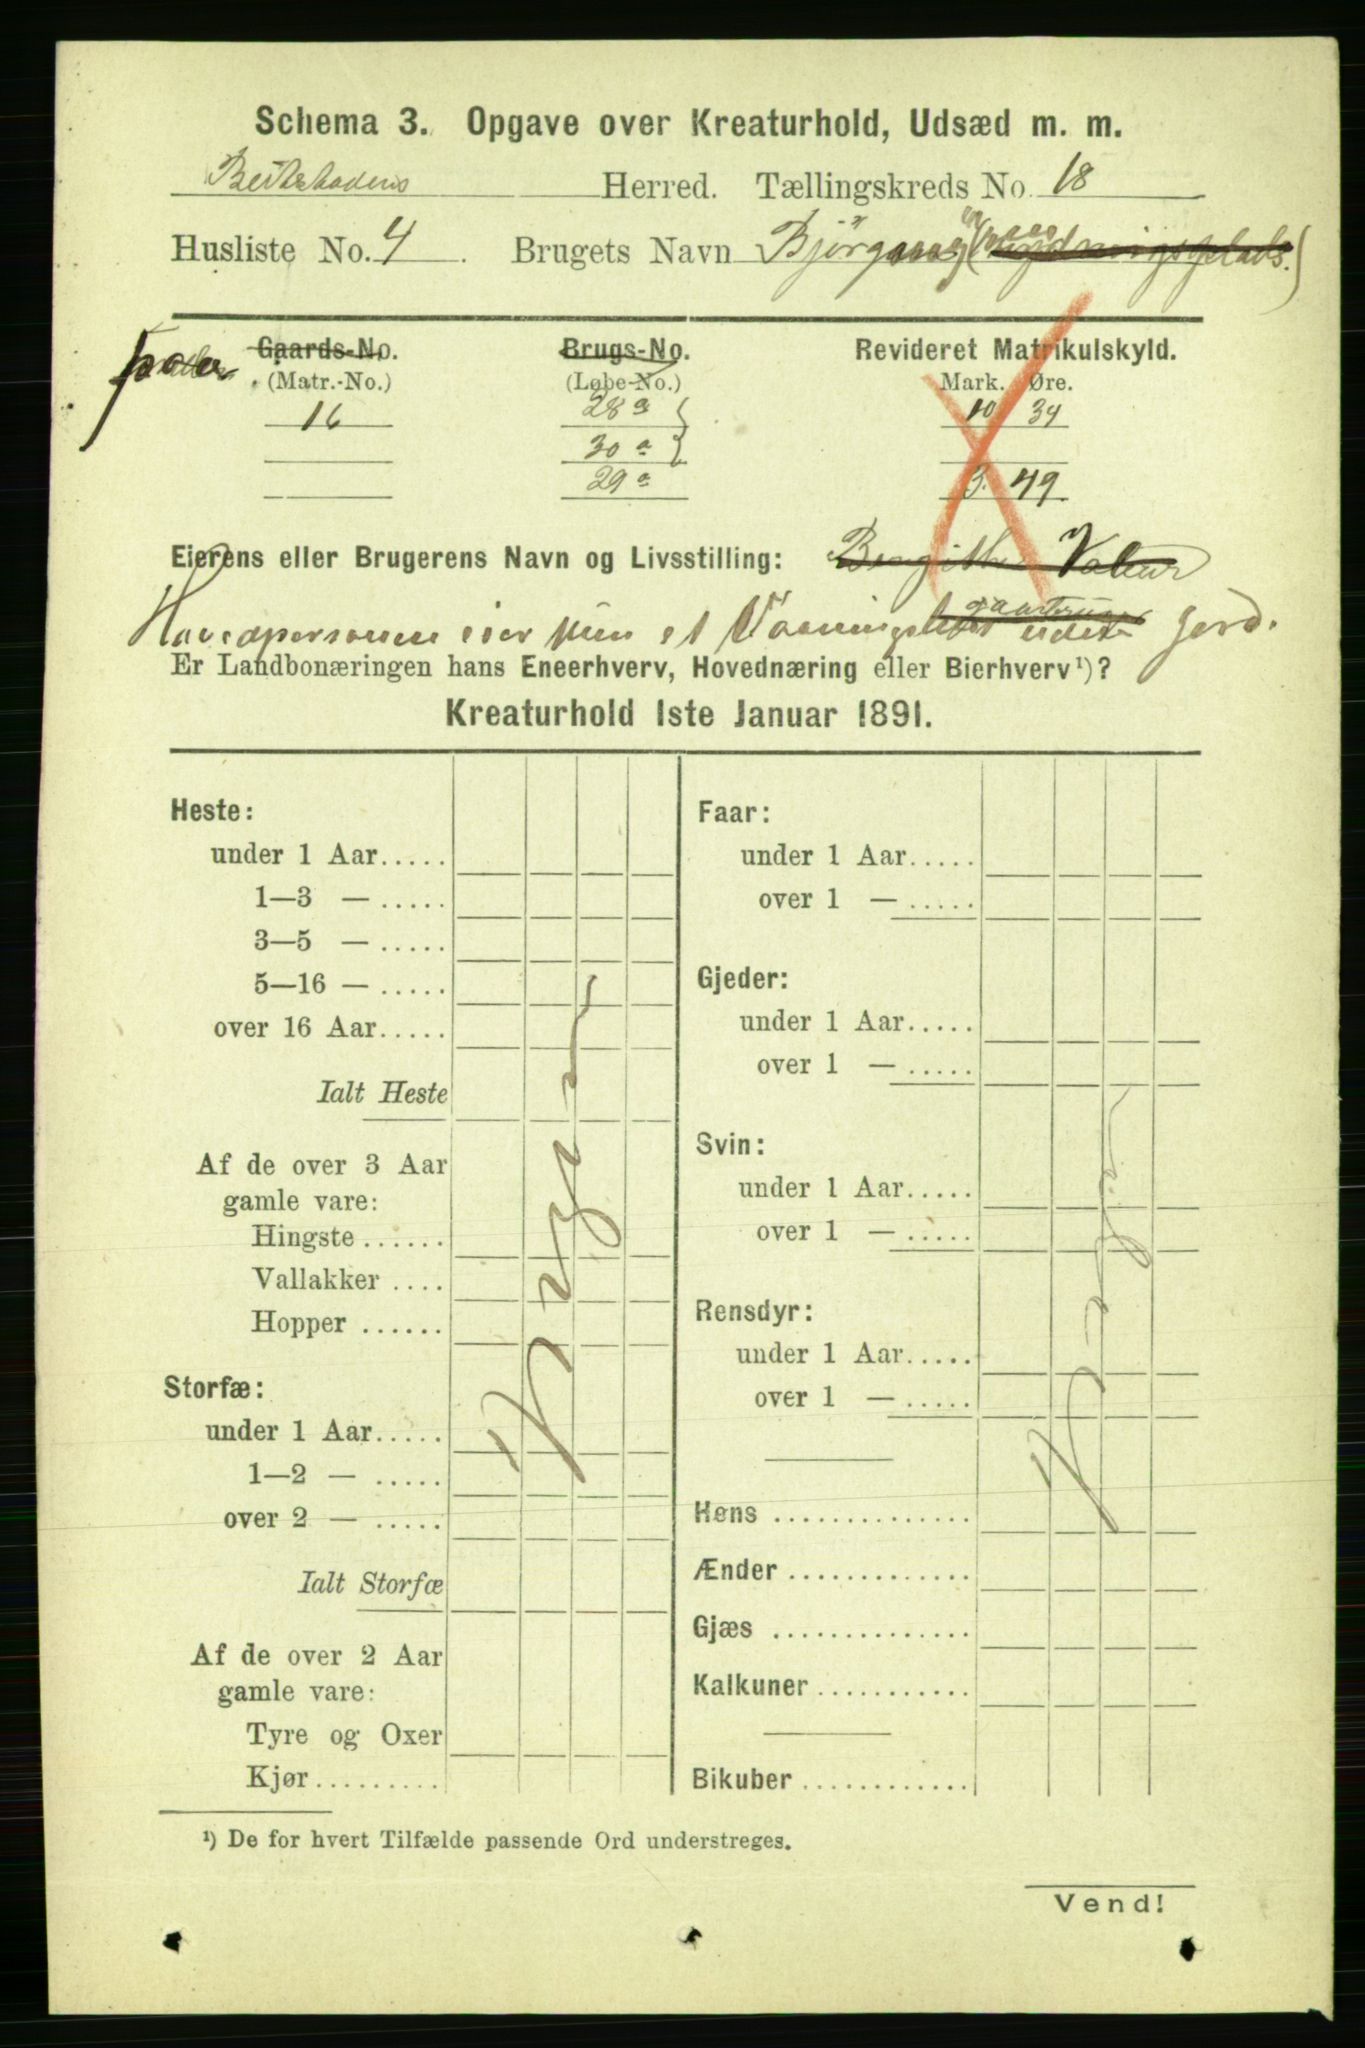 Schema 3. Opgave over Kreaturhold, Udsæd m. m.
Beitstadens Herred. Tællingskreds No. 18
Husliste No. 4. Brugets Navn
Gaards-No. Brugs-No. Revideret Matrikulskyld.
(Matr.-No.) (Løbe-No.) Mark. Øre.
16 28 a 10 34
30 a
29 a 3. 49
Eierens eller Brugerens Navn og Livsstilling:
Hovedpersonen eier kun et jord.
Er Landbonæringen hans Eneerhverv, Hovednæring eller Bierhverv¹)?
Kreaturhold 1ste Januar 1891.
Heste:
under 1 Aar.....
1—3 — .....
3—5 — .....
5—16 — .....
over 16 Aar.....
Ialt Heste
Af de over 3 Aar
gamle vare:
Hingste ......
Vallakker ....
Hopper ......
Storfæ:
under 1 Aar.....
1—2 — .....
over 2 — .....
Ialt Storfæ
Af de over 2 Aar
gamle vare:
Tyre og Oxer
Kjør..........
Ingen
Faar:
under 1 Aar.....
over 1 — .....
Gjeder:
under 1 Aar.....
over 1 — .....
Svin:
under 1 Aar.....
over 1 — .....
Rensdyr:
under 1 Aar.....
over 1 — .....
Høns ..............
Ænder .............
Gjæs ..............
Kalkuner ...........
Bikuber ............
Ingen
¹) De for hvert Tilfælde passende Ord understreges.
Vend!